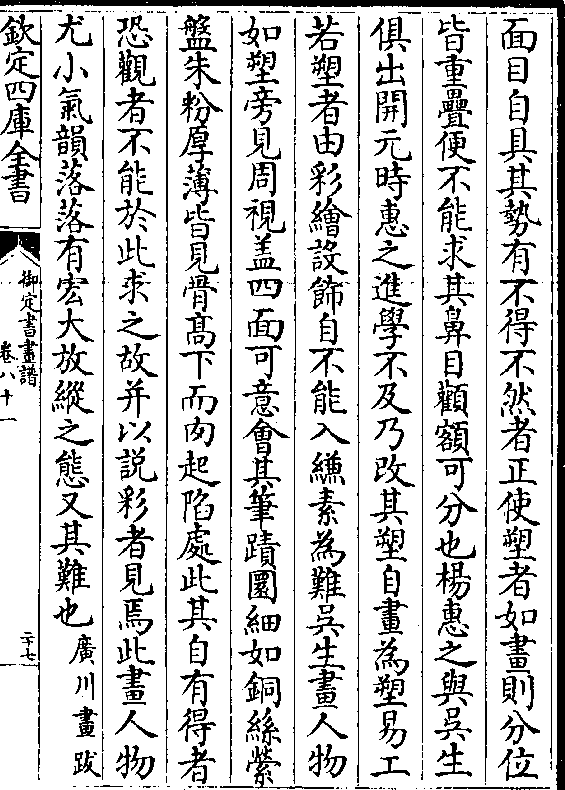 面目自具其勢有不得不然者正使塑者如畫則分位
皆重疊便不能求其鼻目顴額可分也楊惠之與吳生
俱出開元時惠之進學不及乃改其塑自畫為塑易工
若塑者由彩繪設飾自不能入縑素為難吳生畫人物
如塑旁見周視盖四面可意會其筆蹟圜細如銅絲縈
盤朱粉厚薄皆見骨髙下而肉起陷處此其自有得者
恐觀者不能於此求之故并以説彩者見焉此畫人物
尤小氣韻落落有宏大放縱之態又其難也 廣川畫跋
欽定四庫全書
御定書畫譜
卷八十一
二十七